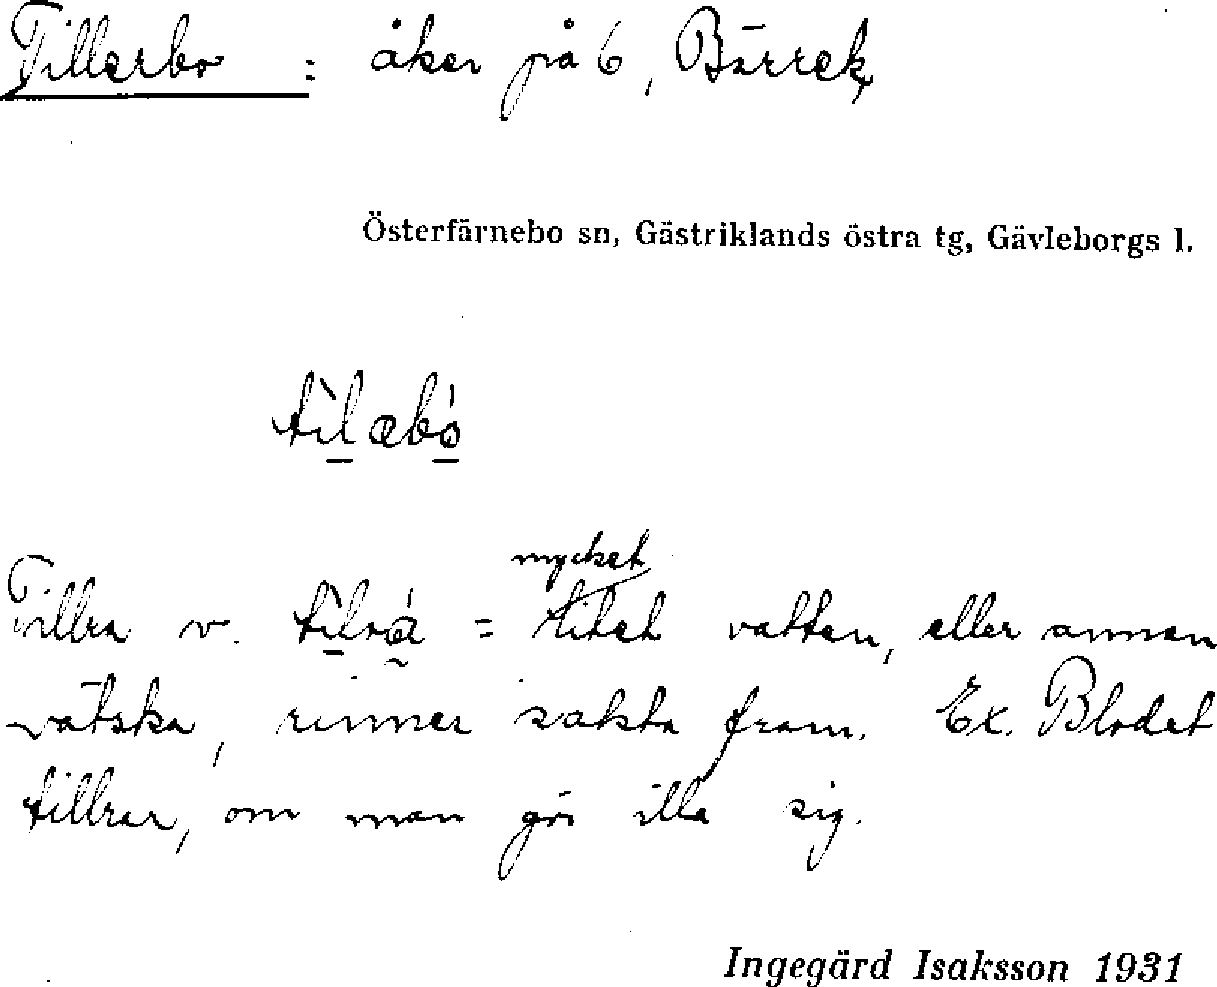 Tillerbo : åker på 6, Bärrek,
Österfärnebo sn, Gästriklands östra tg, Gävleborgs l.
tìlæbó
mycket
Tillra v. tìlrá = litet vatten, eller annan
vätska, rinner sakta fram. Ex. Blodet
tillrar, om man gör illa sig.
Ingegärd Isaksson 1931